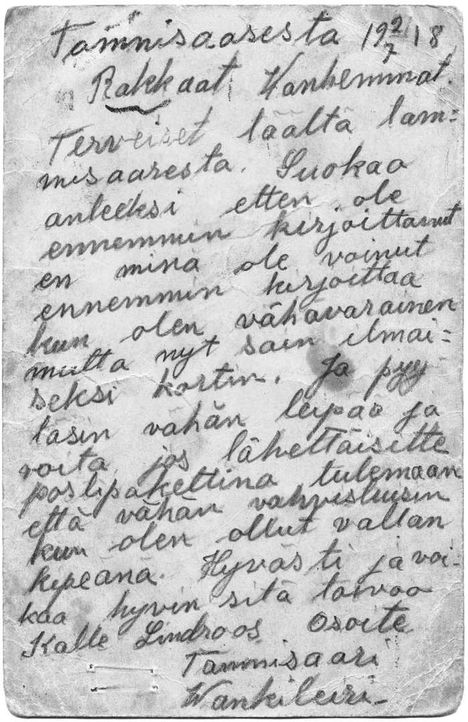 Tammisaaresta 19 2/7 18
Rakkaat Wanhemmat.
Terveiset täältä tam=
misaaresta. Suokaa
anteeksi etten ole
ennemmin kirjoittanut
en minä ole voinut
ennemmin kirjoittaa
kun olen vähävarainen
mutta nyt sain ilmai=
seksi kortin. Ja pyy
täsin vähän leipää ja
voita jos lähettäisitte
postipakettina tulemaan
että vähän vahvistuisin
kun olen ollut vallan
kipeänä. Hyvästi ja voi=
kaa hyvin sitä toivoo
Kalle Lindroos Osoite
Tammisaari
Wankileiri